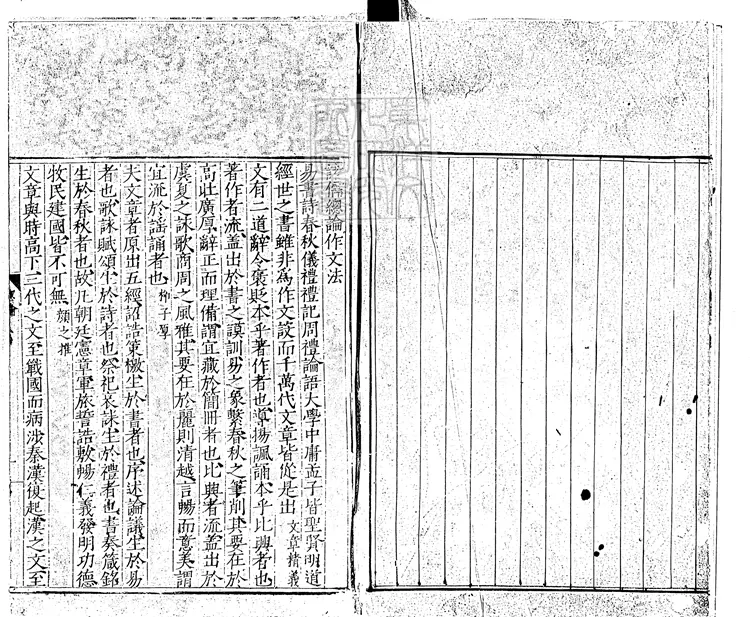 諸儒總論作文法
易書詩春秋儀禮禮記周禮論語大學中庸孟子皆聖賢明道
經世之書雖非為作文設而千萬代文章皆從是出 文章精義
文有二道辭令褒貶本乎著作者也導揚諷誦本乎比興者也
著作者流盖出於書之謨訓易之象繫春秋之筆削其要在於
高壯廣厚辭正而理備謂宜藏於簡冊者也比興者流盖出於
虞夏之詠歌商周之風雅其要在於麗則清越言暢而意美謂
宜流於謡誦者也 柳子厚
夫文章者原出五經詔誥策檄生於書者也序述論議生於易
者也歌詠賦頌生於詩者也祭祀哀誄生於禮者也書奏箴銘
生於春秋者也故凡朝廷憲章軍旅誓誥敷暢仁義發明功德
牧民建國皆不可無 顏之推
文章與時高下三代之文至戰國而病涉秦漢復起漢之文至